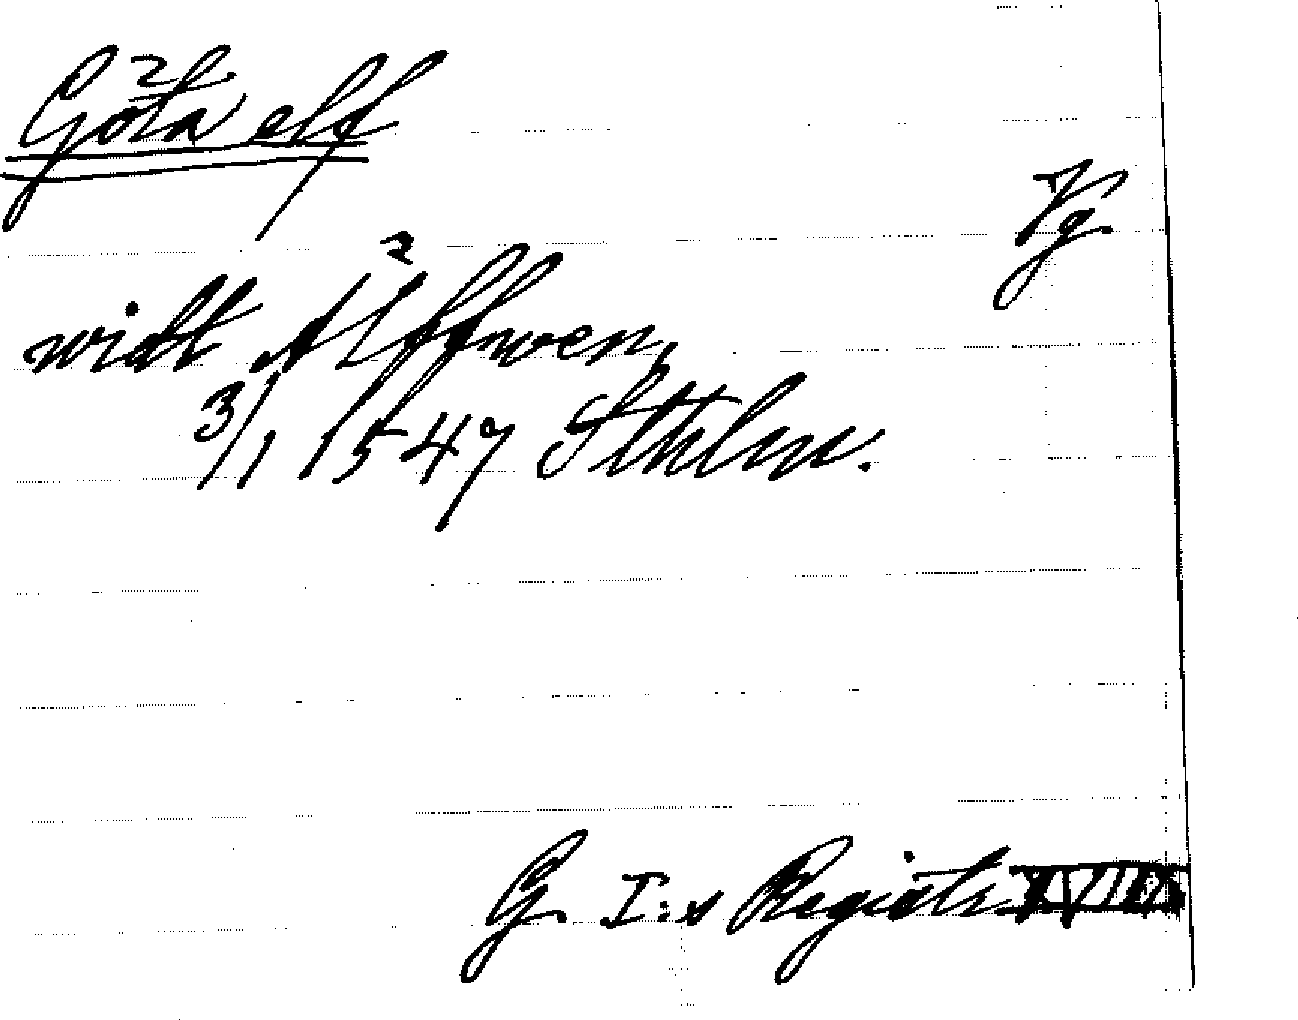 Göta elf
Vg
widt Alffwen,
3/1 1547 Sthlm.
G. I:s Registr. XVIII